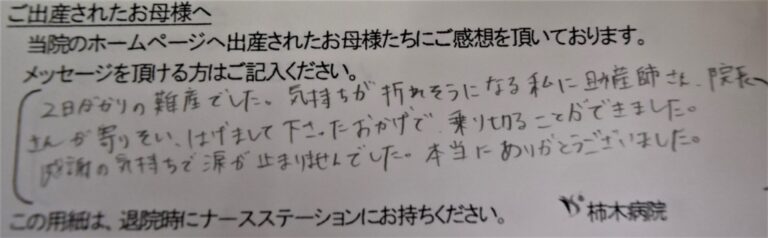 ご出産されたお母様へ
当院のホームページへ出産されたお母様たちにご感想を頂いております。
メッセージを頂ける方はご記入ください。
2日がかりの難産でした。気持ちが折れそうになる私に助産師さん、院長
さんが寄りそい、はげまして下さったおかげで、乗り切ることができました。
感謝の気持ちで涙が止まりませんでした。本当にありがとうございました。
この用紙は、退院時にナースステーションにお持ちください。 柿木病院